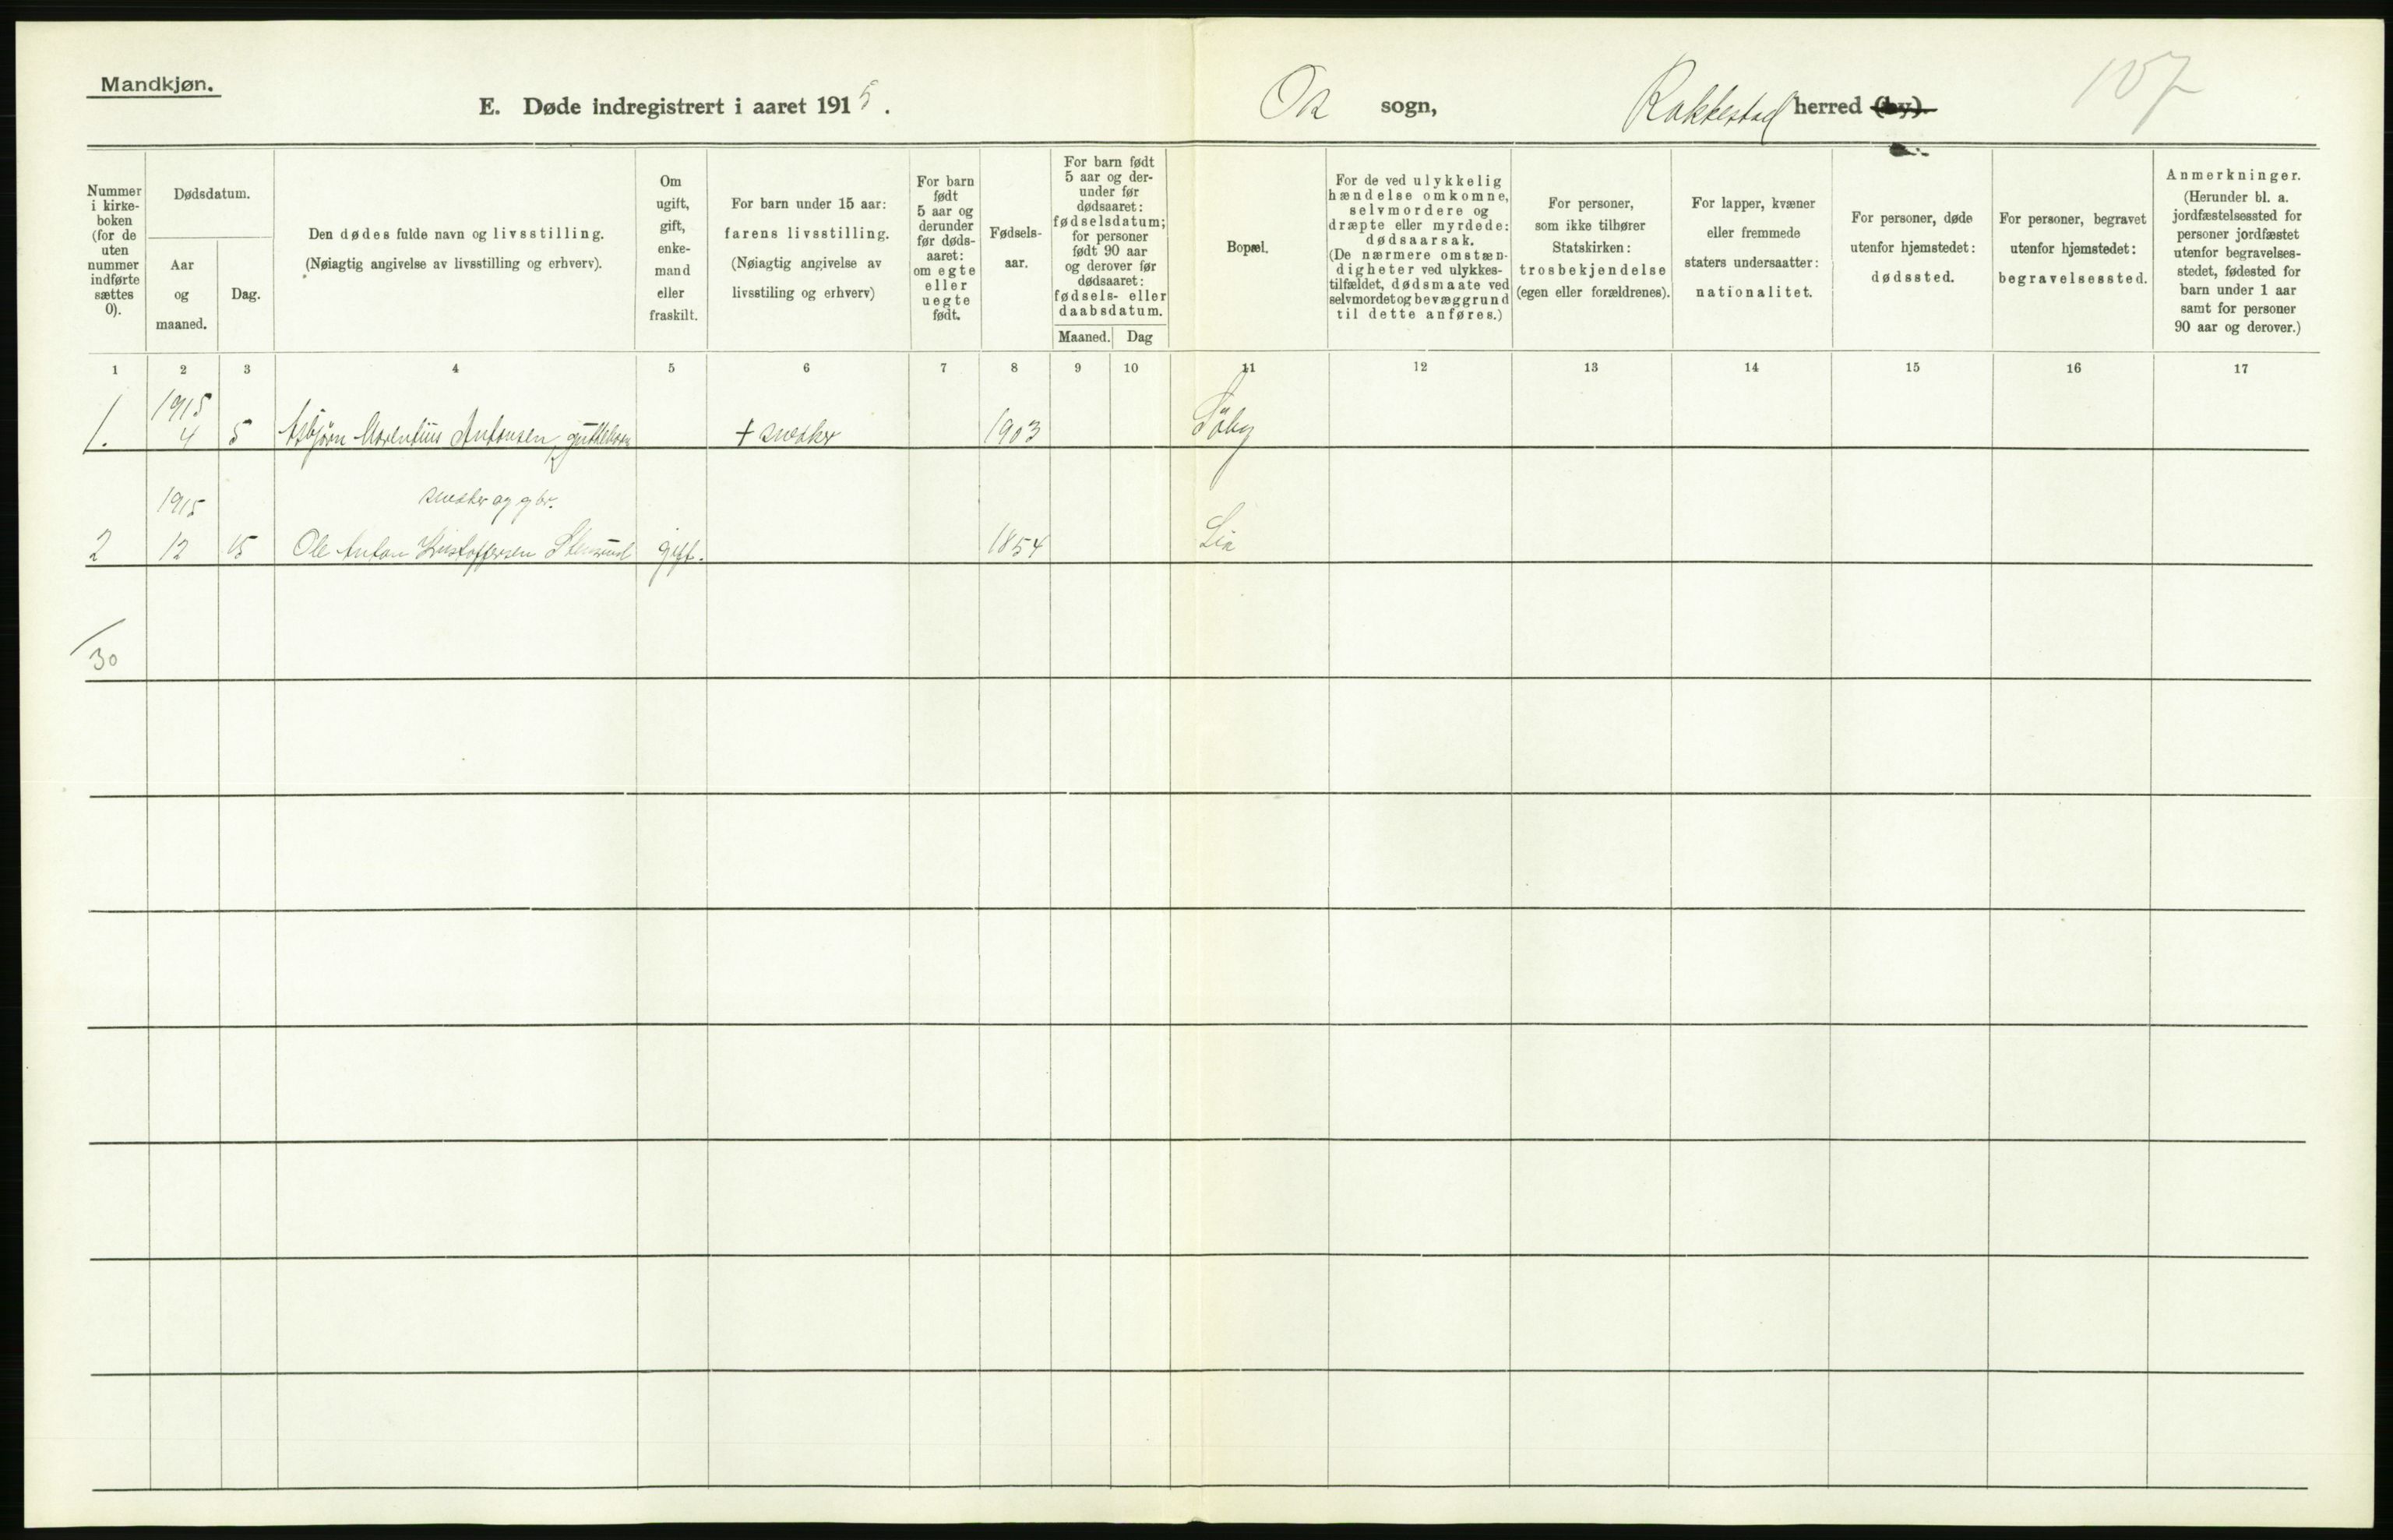 Mandkjøn.
E. Døde indregistrert i aaret 1915.
Os sogn, Rakkestad herred (by).
107
Nummer i kirke-boken (for de uten nummer indførte sættes 0).
Dødsdatum.
Aar og maaned.
Dag.
Den dødes fulde navn og livsstilling.
(Nøiagtig angivelse av livsstilling og erhverv).
Om ugift, gift, enke-mand eller fraskilt.
For barn under 15 aar: farens livsstilling.
(Nøiagtig angivelse av livsstiling og erhverv)
For barn født 5 aar og derunder før døds-aaret: om egte eller uegte født.
Fødsels-aar.
For barn født 5 aar og der-under før dødsaaret: fødselsdatum; for personer født 90 aar og derover før dødsaaret: fødsels- eller daabsdatum.
Maaned. Dag
Bopæl.
For de ved ulykkelig hændelse omkomne, selvmordere og dræpte eller myrdede: dødsaarsak.
(De nærmere omstæn-digheter ved ulykkes-tilfældet, dødsmaate ved selvmordet og bevæggrund til dette anføres.)
For personer, som ikke tilhører Statskirken: trosbekjendelse (egen eller forældrenes).
For lapper, kvæner eller fremmede staters undersaatter: nationalitet.
For personer, døde utenfor hjemstedet: dødssted.
For personer, begravet utenfor hjemstedet: begravelsessted.
Anmerkninger.
(Herunder bl. a. jordfæstelsessted for personer jordfæstet utenfor begravelses-stedet, fødested for barn under 1 aar samt for personer 90 aar og derover.)
1 2 3 4 5 6 7 8 9 10 11 12 13 14 15 16 17
1915
1. 4 5 Asbjørn Antonsen, guttebarn + snedker 1903 Söby
1915 snedker og gbr.
2 12 15 Ole Anton Kristoffersen Stensrud gift. 1854 Lie
30